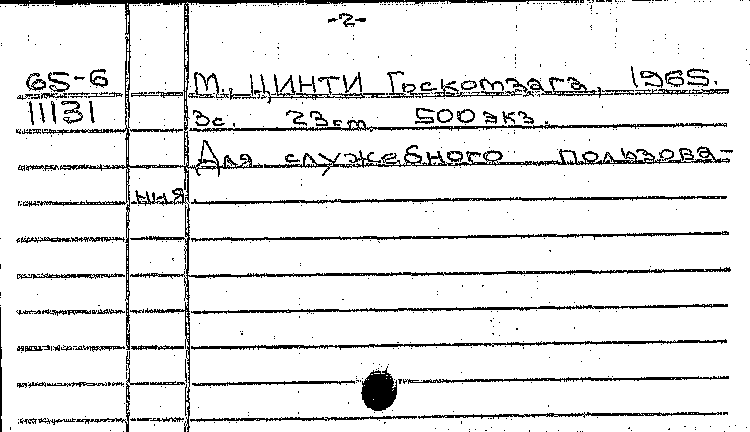 -2-
65-6 М., ЦИНТИ Госкомзага, 1965.
11131 3с. 23см 500 экз.
Для служебного пользова-
ния.